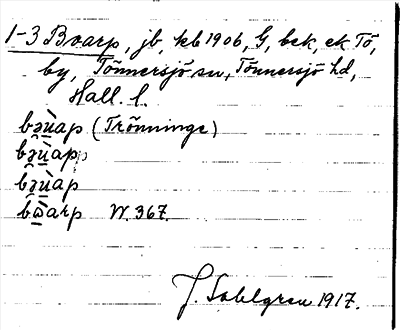 1-3 Boarp, jb, kb 1906, G, bek, ek Tö,
by, Tönnersjö sn, Tönnersjö hd,
Hall. l.
bǝù̱ap (Trönninge)
bǝù̱ap
bǝù̱ap
bὼ̱arp W. 367.
J. Sahlgren 1917.